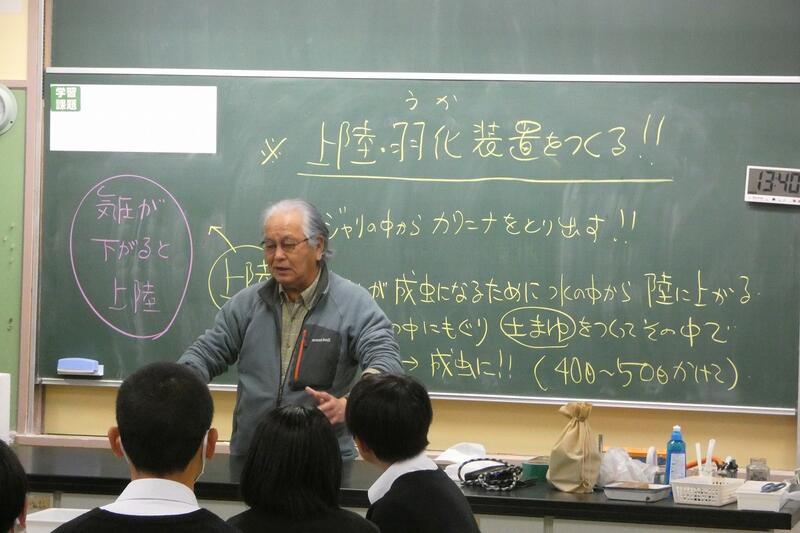 学習
課題
うか
※ 上陸・羽化装置をつくる!!
気圧が
下がると
上陸
ジャリの中から カワニナをとり出す!!
上陸
が成虫になるために水の中から 陸に上がる
の中にもぐり 土まゆをつくってその中で
→ 成虫に!! (40日〜50日かけて)
13:40